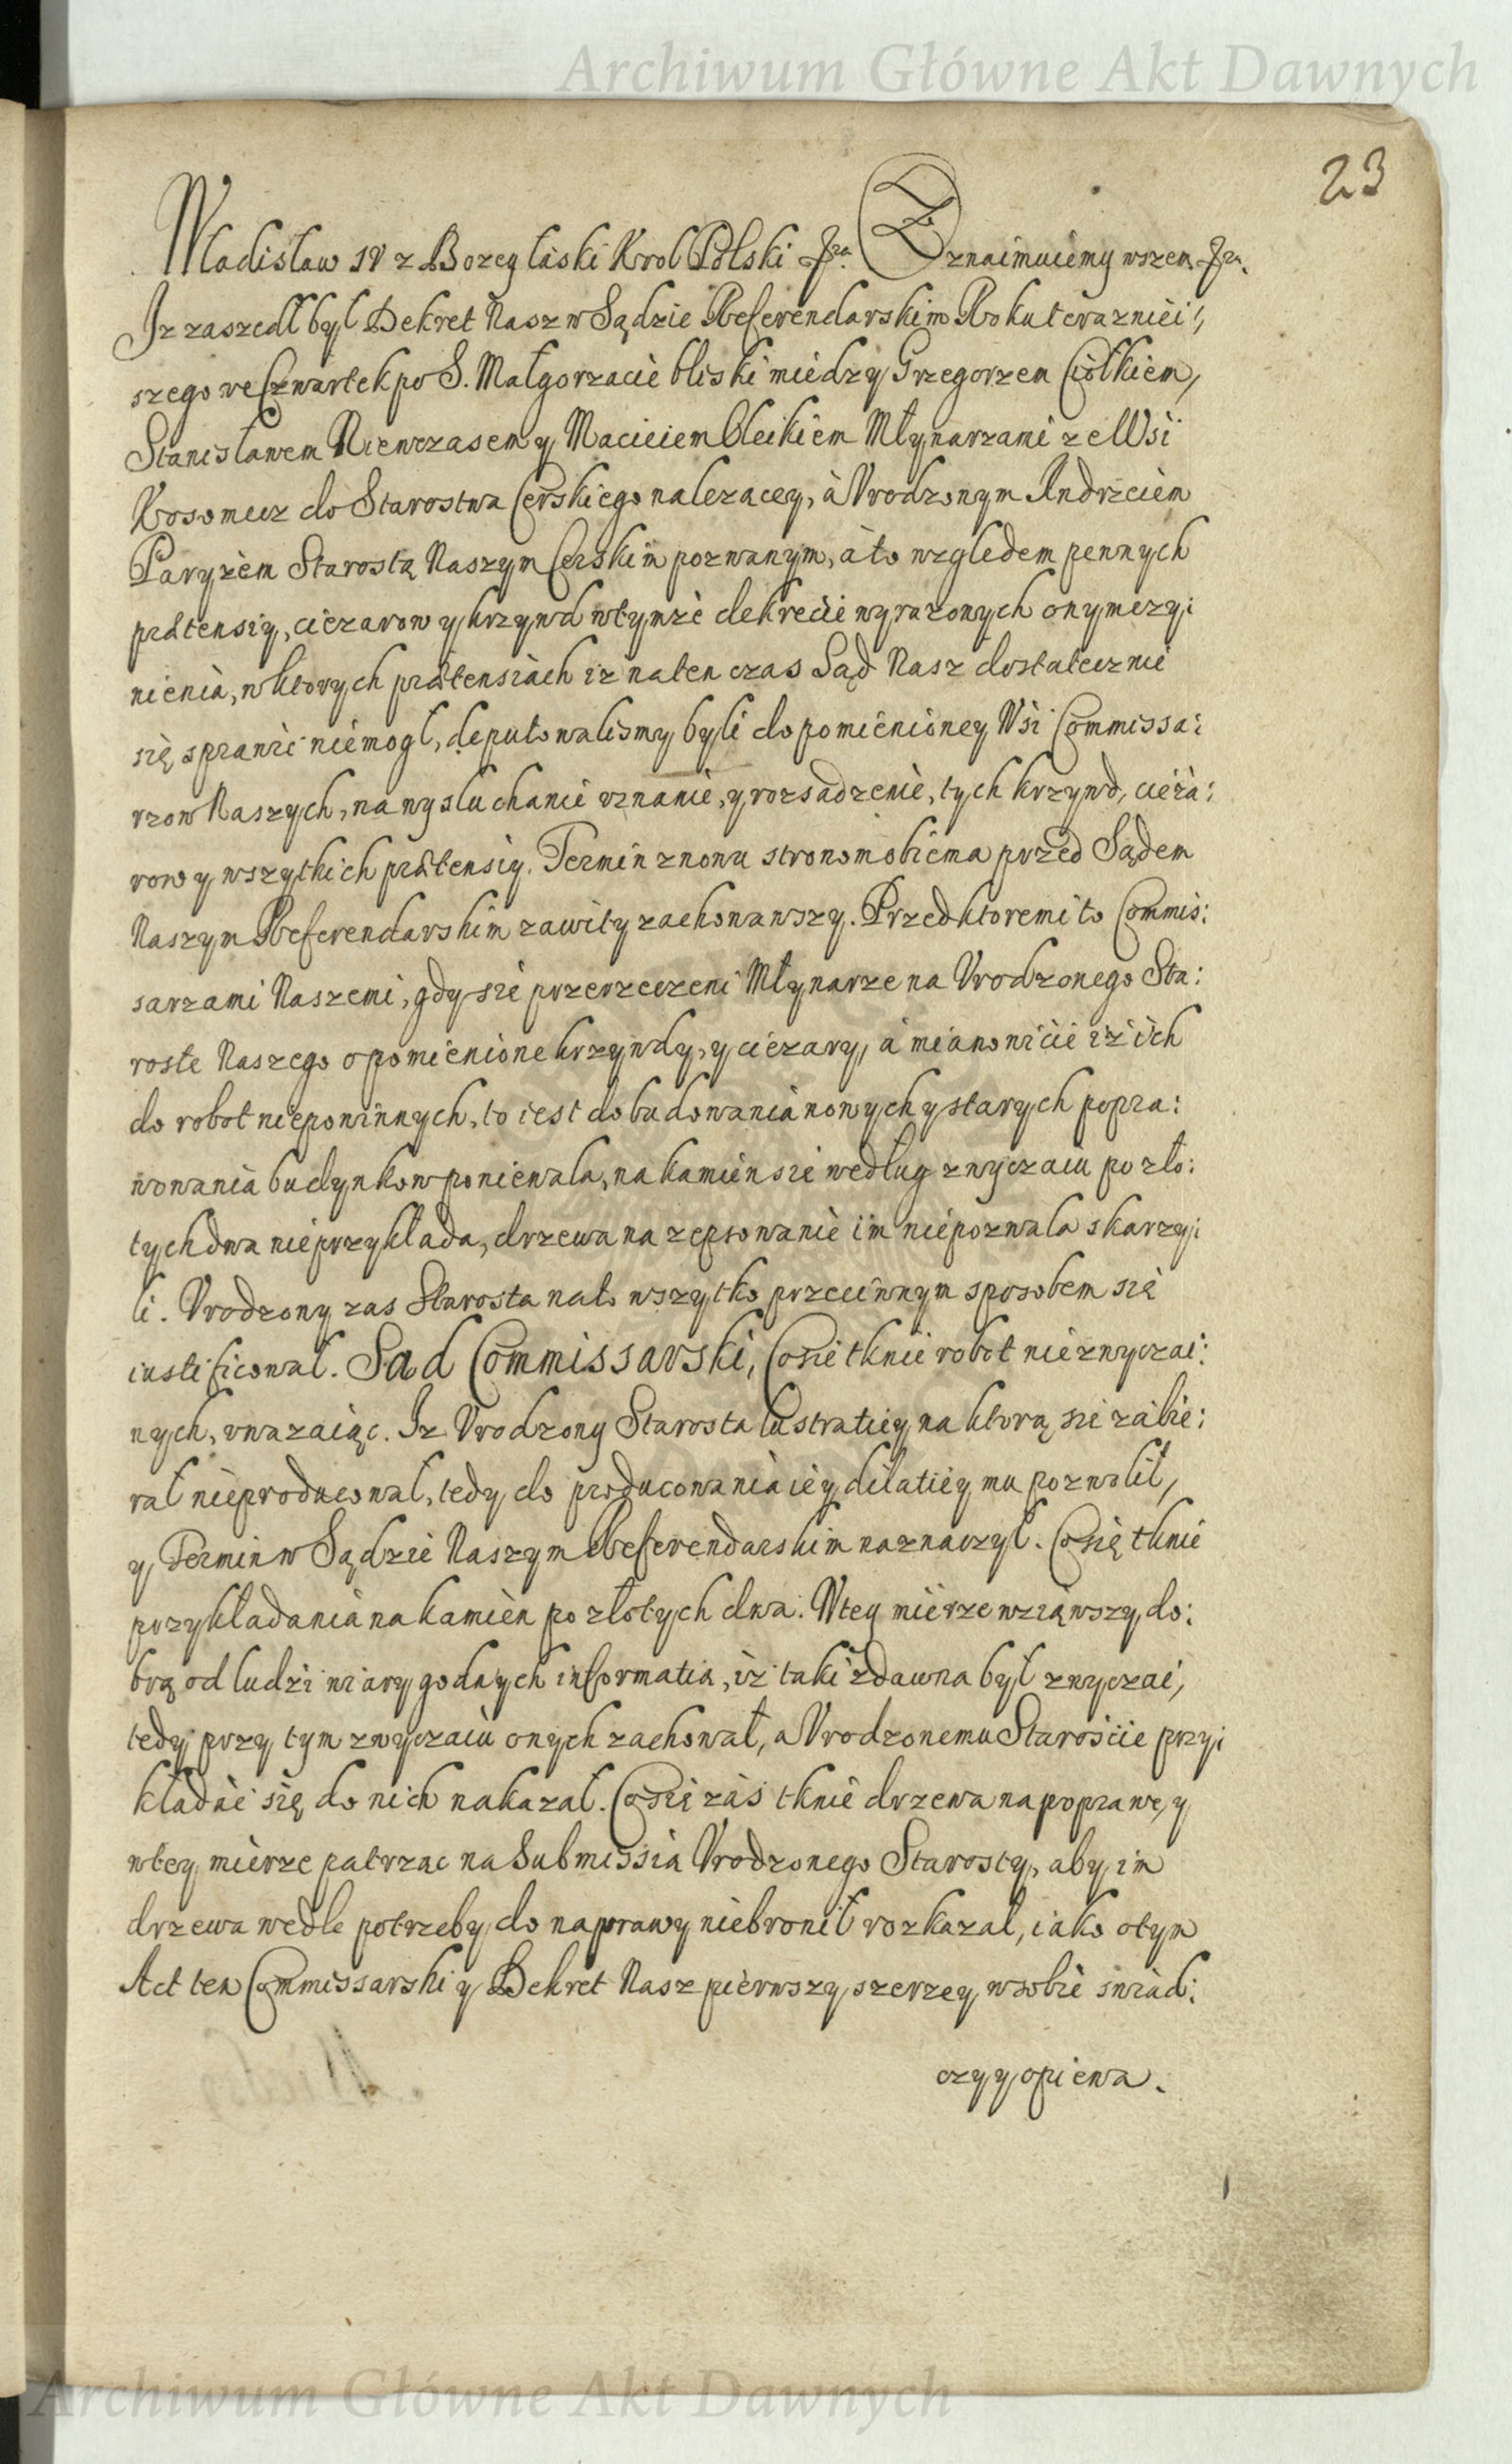 Archiwum Główne Akt Dawnych
23
Wladislaw IV z Bozey laski Krol Polski &ca. Oznaimuiemy wszem &ca.
Iz zaszedł był Dekret Nasz w Sądzie Referendarskim Roku terazniei:
szego we Czwartek po S. Małgorzacie bliski miedzy Grzegorzem Ciołkiem,
Stanisławem Niewczasem y Macieiem Oleikiem Młynarzami ze Wsi
Kosomecz do Starostwa Cerskiego nalezacey, à Vrodzonym Andrzeiem
Paryzem Starostą Naszym Cerskim pozwanym, à to względem pewnych
prætensiy, ciezarow y krzywd w tymze dekrecie wyrazonych onym czy:
nienia, w ktorych prætensiach iz na ten czas Sąd Nasz dostatecznie
się sprawic niemogł, deputowalismy byli do pomienioney Wsi Commissa:
rzow Naszych, na wysluchanie vznanie, y rozsadzenie, tych krzywd, cięża:
row y wszytkich prætensiy. Termin znowu stronom obiema przed Sądem
Naszym Referendarskim zawity zachowawszy. Przed ktoremi to Commis:
sarzami Naszemi, gdy sie przerzeczeni Młynarze na Vrodzonego Sta:
roste Naszego o pomienione krzywdy, y ciezary, à mianowicie iż ich
do robot niepowinnych, to iest do budowania nowych y starych popra:
wowania budynkow poniewala, na kamien sie według zwyczaiu po zło:
tych dwa nieprzyklada, drzewa na zepsowanie im niepozwala skarzy:
li. Vrodzony zas Starosta na to wszytko przeciwnym sposobem się
iustificował. Sąd Commissarski, Co sie tknie robot niezwyczai:
nych, uwazaiąc. Iz Vrodzony Starosta lustratiey na ktorą sie zabie:
rał nieproducował, tedy do producowania iey dilatiey mu pozwolił,
y Termin w Sądzie Naszym Referendarskim naznaczył. Co się tknie
przykładania na kamien po złotych dwa. W tey mierze wziąwszy do:
brą od ludzi wiary godnych informatia, iż taki zdawna był zwyczai,
tedy przy tym zwyczaiu onych zachował, a Vrodzonemu Staroscie przy:
kładać się do nich nakazał. Co się zaś tknie drzewa na poprawe, y
w tey mierze patrzac na Submissia Vrodzonego Starosty, aby im
drzewa wedle potrzeby do naprawy niebronił rozkazał, iako o tym
Act ten Commissarski y Dekret Nasz pierwszy szerzey w sobie swiad:
czy y opiewa.
Archiwum Główne Akt Dawnych